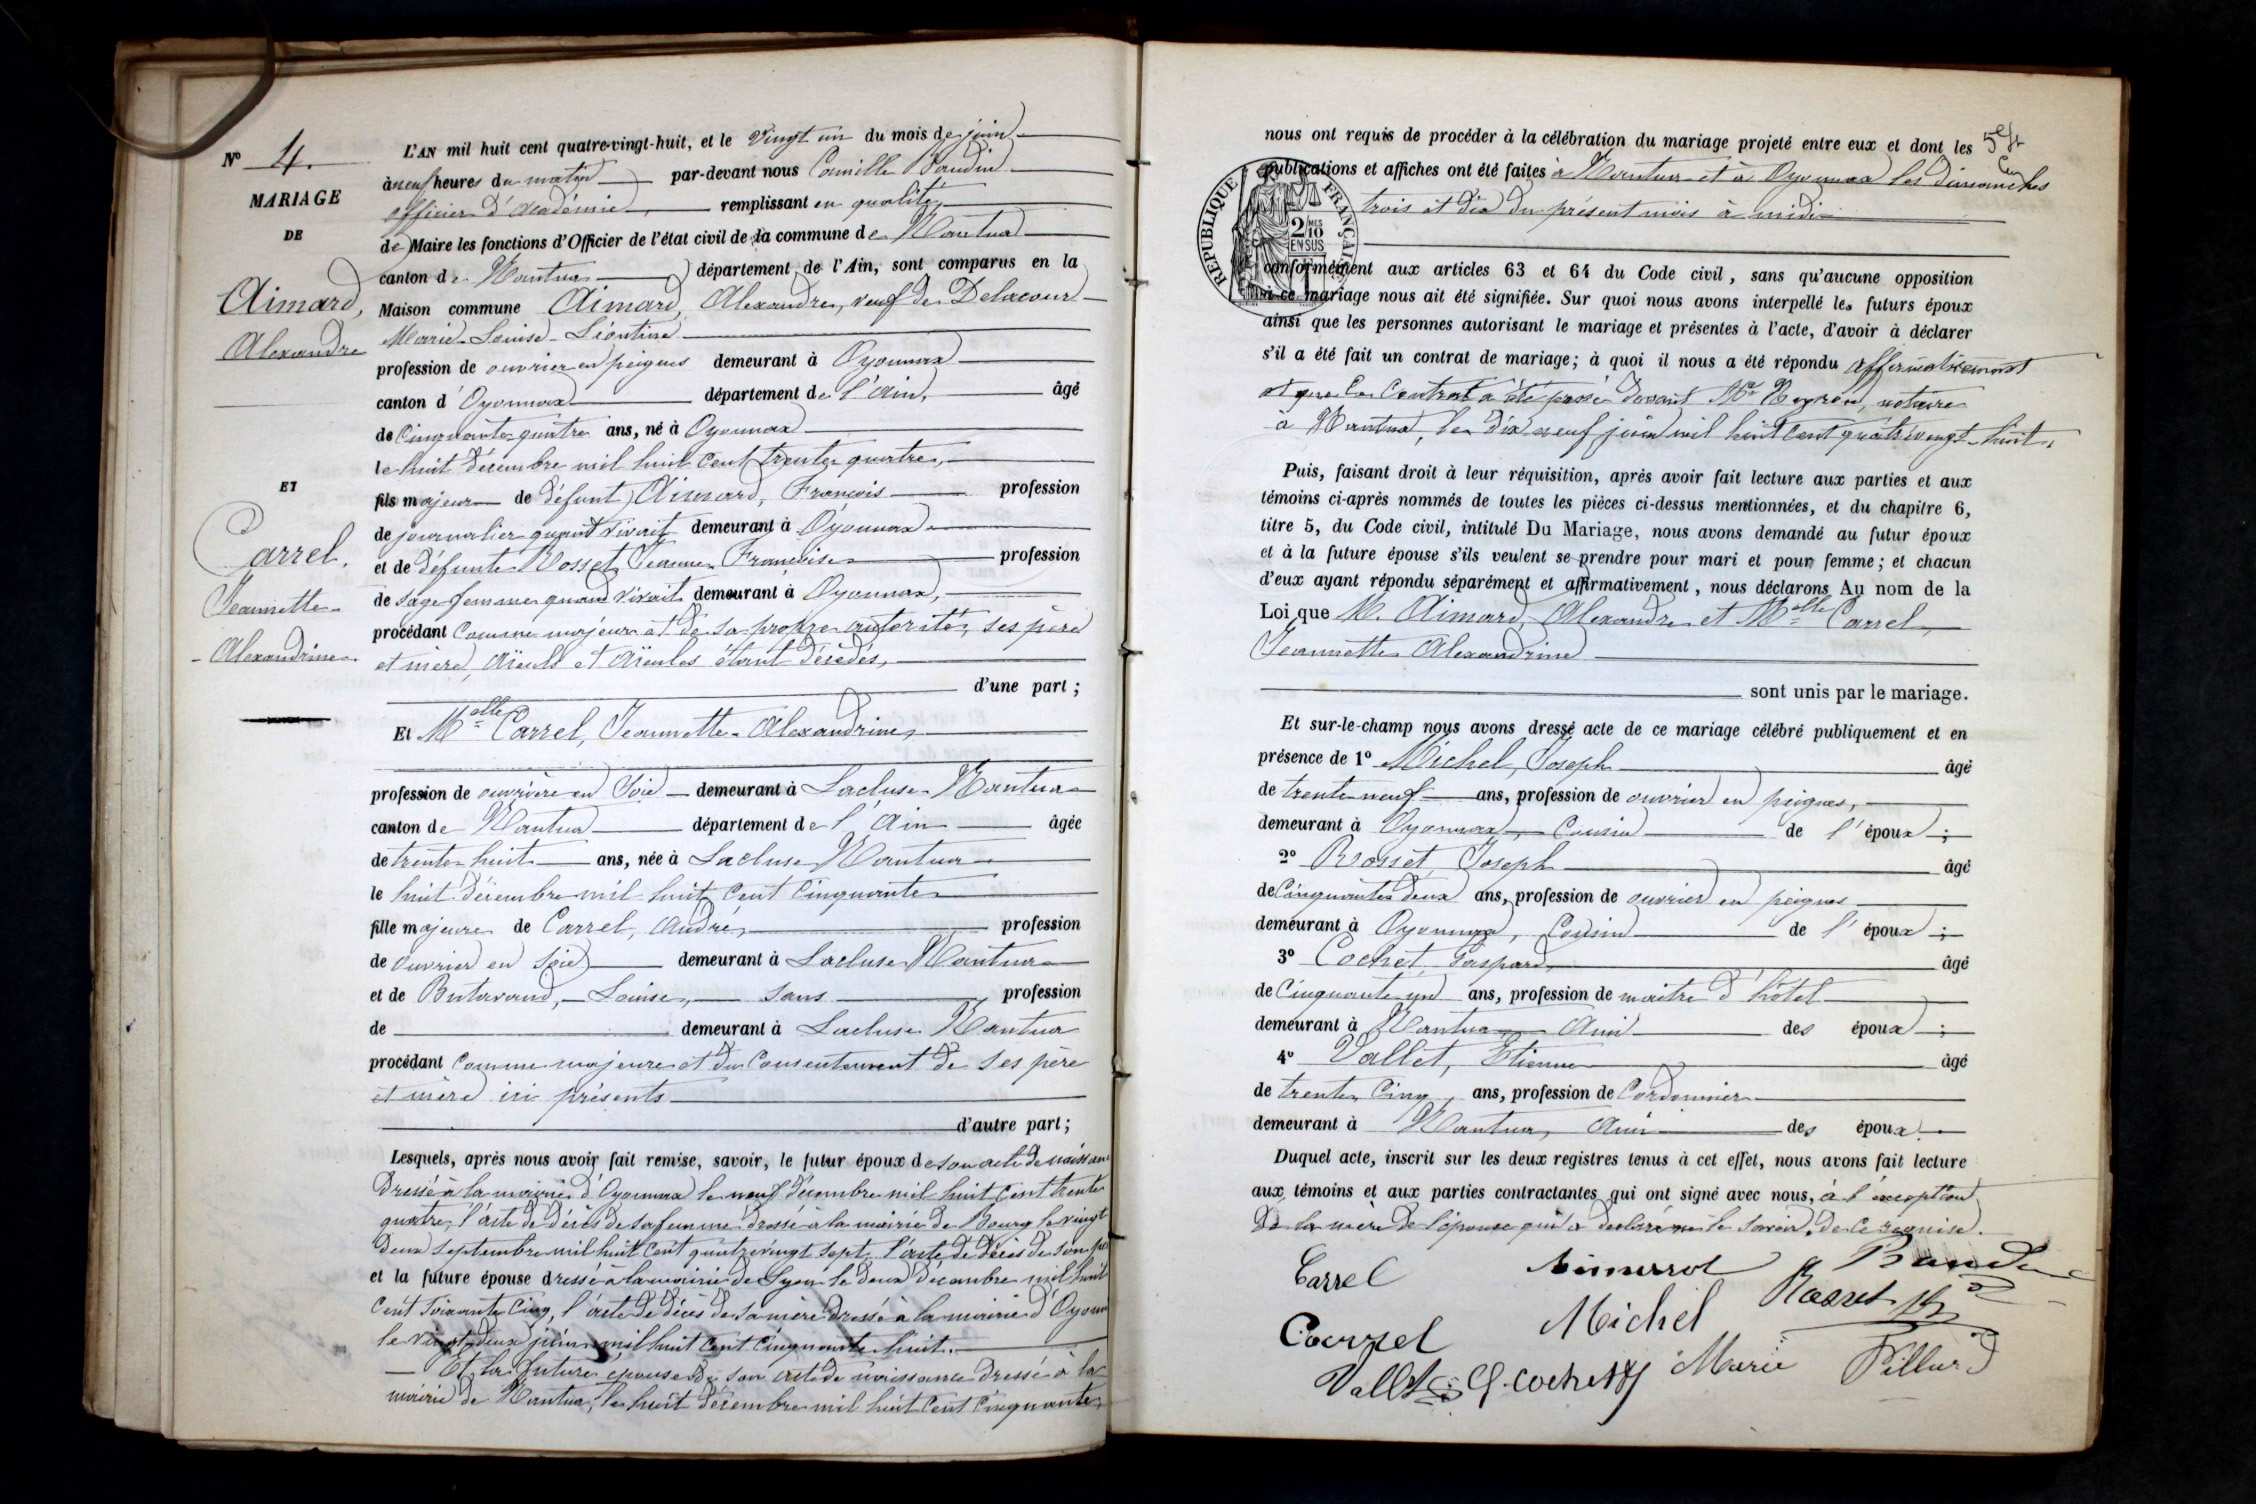 N° 4.
MARIAGE
DE
Aimard,
Alexandre
ET
Carrel.
Jeannette
Alexandrine
L'AN mil huit cent quatre-vingt-huit, et le vingt un du mois de juin
à neuf heures du matin par-devant nous Camille Baudin
officier d'Académie, remplissant en qualité
de Maire les fonctions d'Officier de l'état civil de la commune de Nantua
canton de Nantua département de l'Ain, sont comparus en la
Maison commune Aimard, Alexandre, veuf de Delacour
Marie-Louise-Léontine
profession de ouvrier en peignes demeurant à Oyonnax
canton d'Oyonnax département de l'Ain, âgé
de cinquante quatre ans, né à Oyonnax
le huit décembre mil huit cent trente quatre,
fils majeur de défunt Aimard, François profession
de journalier quand vivait demeurant à Oyonnax
et de défunte Rosset Jeanne Françoise profession
de sage femme quand vivait demeurant à Oyonnax,
procédant comme majeur et de sa propre autorité, ses père
et mère, aïeuls et aïeules étant décédés,
d'une part;
Et Melle Carrel, Jeannette-Alexandrine,
profession de ouvrière en soie demeurant à Lacluse Nantua
canton de Nantua département de l'Ain âgée
de trente huit ans, née à Lacluse Nantua
le huit décembre mil huit cent cinquante
fille majeure de Carrel, André, profession
de ouvrier en soie demeurant à Lacluse Nantua
et de Butavand, Louise, sans profession
de demeurant à Lacluse Nantua
procédant comme majeure et du consentement de ses père
et mère ici présents
d'autre part;
Lesquels, après nous avoir fait remise, savoir, le futur époux de son acte de naissance
dressé à la mairie d'Oyonnax le neuf décembre mil huit cent trente
quatre, l'acte de décès de sa femme dressé à la mairie de Bourg le vingt
deux septembre mil huit cent quatrevingt sept, l'acte de décès de son père
et la future épouse dressé à la mairie de Lyon le deux décembre mil huit
cent soixante cinq, l'acte de décès de sa mère dressé à la mairie d'Oyonnax
le vingt deux juin mil huit cent cinquante huit.
Et la future épouse de son acte de naissance dressé à la
mairie de Nantua, le huit décembre mil huit cent cinquante,
nous ont requis de procéder à la célébration du mariage projeté entre eux et dont les
publications et affiches ont été faites à Nantua et à Oyonnax les dimanches
trois et dix du présent mois à midi
RÉPUBLIQUE FRANÇAISE
2 MES 10 EN SUS
conformément aux articles 63 et 64 du Code civil, sans qu'aucune opposition
à ce mariage nous ait été signifiée. Sur quoi nous avons interpellé les futurs époux
ainsi que les personnes autorisant le mariage et présentes à l'acte, d'avoir à déclarer
s'il a été fait un contrat de mariage; à quoi il nous a été répondu affirmativement
et que le contrat a été passé devant Me notaire
à Nantua, le dix neuf juin mil huit cent quatrevingt-huit.
Puis, faisant droit à leur réquisition, après avoir fait lecture aux parties et aux
témoins ci-après nommés de toutes les pièces ci-dessus mentionnées, et du chapitre 6,
titre 5, du Code civil, intitulé Du Mariage, nous avons demandé au futur époux
et à la future épouse s'ils veulent se prendre pour mari et pour femme; et chacun
d'eux ayant répondu séparément et affirmativement, nous déclarons Au nom de la
Loi que M. Aimard, Alexandre et Melle Carrel,
Jeannette Alexandrine
sont unis par le mariage.
Et sur-le-champ nous avons dressé acte de ce mariage célébré publiquement et en
présence de 1° Michel, Joseph âgé
de trente neuf ans, profession de ouvrier en peignes,
demeurant à Oyonnax, cousin de l'époux;
2° Rosset, Joseph âgé
de cinquante deux ans, profession de ouvrier en peignes
demeurant à Oyonnax, cousin de l'époux;
3° Cochet, Gaspard, âgé
de cinquante un ans, profession de maître d'hôtel
demeurant à Nantua ami des époux;
4° Vallet, Etienne âgé
de trente cinq, ans, profession de cordonnier
demeurant à Nantua, ami des époux.
Duquel acte, inscrit sur les deux registres tenus à cet effet, nous avons fait lecture
aux témoins et aux parties contractantes qui ont signé avec nous, à l'exception
de la mère de l'épouse qui a déclaré ne le savoir, de ce requise.
Carrel
Carrel Michel Rosset
Vallet G. Cochet Marie Pillard